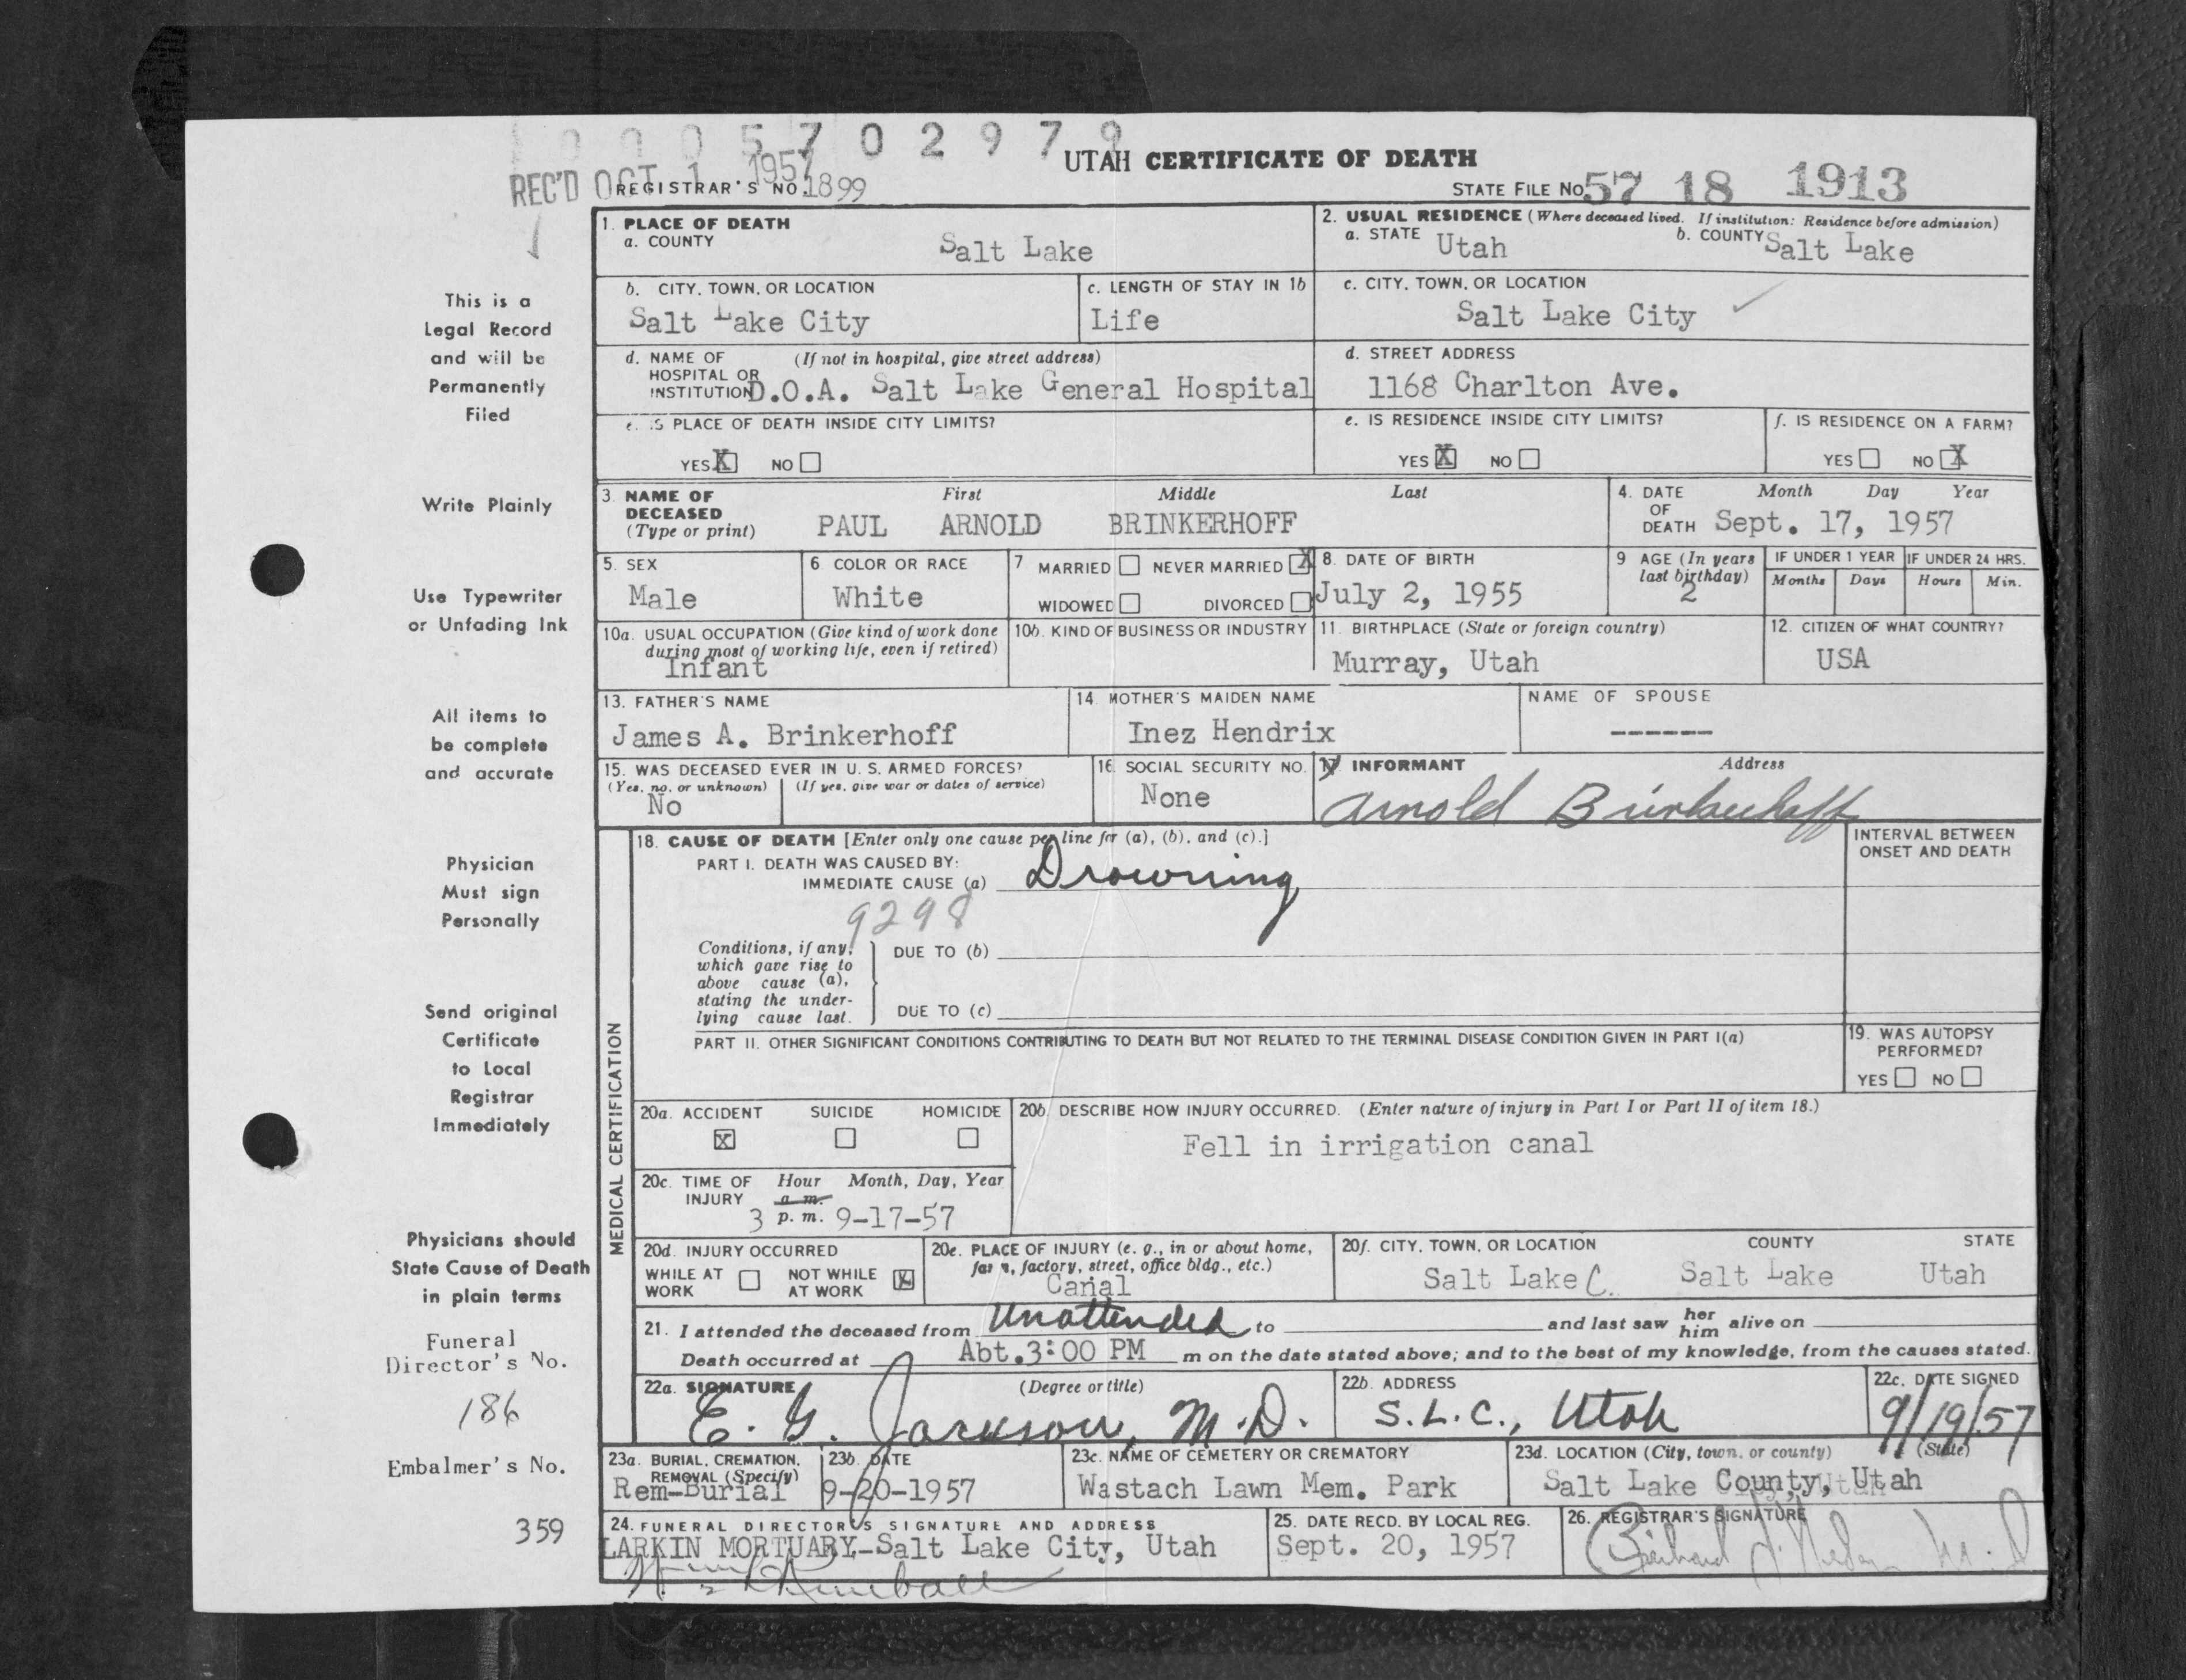 0005702979
REC'D OCT 1 1957
UTAH CERTIFICATE OF DEATH
REGISTRAR'S NO. 1899
STATE FILE NO. 57 18 1913
This is a
Legal Record
and will be
Permanently
Filed
Write Plainly
Use Typewriter
or Unfading Ink
All items to
be complete
and accurate
Physician
Must sign
Personally
Send original
Certificate
to Local
Registrar
Immediately
Physicians should
State Cause of Death
in plain terms
Funeral
Director's No.
186
Embalmer's No.
359
1. PLACE OF DEATH
a. COUNTY
Salt Lake
2. USUAL RESIDENCE (Where deceased lived. If institution: Residence before admission)
a. STATE Utah
b. COUNTY Salt Lake
b. CITY, TOWN, OR LOCATION
Salt Lake City
c. LENGTH OF STAY IN 1b
Life
c. CITY, TOWN, OR LOCATION
Salt Lake City
d. NAME OF (If not in hospital, give street address)
HOSPITAL OR
INSTITUTION D.O.A. Salt Lake General Hospital
d. STREET ADDRESS
1168 Charlton Ave.
e. IS PLACE OF DEATH INSIDE CITY LIMITS?
YES X NO
e. IS RESIDENCE INSIDE CITY LIMITS?
YES X NO
f. IS RESIDENCE ON A FARM?
YES NO X
3. NAME OF
DECEASED
(Type or print)
First Middle Last
PAUL ARNOLD BRINKERHOFF
4. DATE
OF
DEATH
Month Day Year
Sept. 17, 1957
5. SEX
Male
6 COLOR OR RACE
White
7 MARRIED NEVER MARRIED X
WIDOWED DIVORCED
8. DATE OF BIRTH
July 2, 1955
9 AGE (In years
last birthday)
2
IF UNDER 1 YEAR
Months Days
IF UNDER 24 HRS.
Hours Min.
10a. USUAL OCCUPATION (Give kind of work done
during most of working life, even if retired)
Infant
10b. KIND OF BUSINESS OR INDUSTRY
11. BIRTHPLACE (State or foreign country)
Murray, Utah
12. CITIZEN OF WHAT COUNTRY?
USA
13. FATHER'S NAME
James A. Brinkerhoff
14 MOTHER'S MAIDEN NAME
Inez Hendrix
NAME OF SPOUSE
------
15. WAS DECEASED EVER IN U. S. ARMED FORCES?
(Yes, no, or unknown) (If yes, give war or dates of service)
No
16 SOCIAL SECURITY NO.
None
17 INFORMANT Address
Arnold Brinkerhoff
MEDICAL CERTIFICATION
18. CAUSE OF DEATH [Enter only one cause per line for (a), (b), and (c).]
PART I. DEATH WAS CAUSED BY:
IMMEDIATE CAUSE (a) Drowning
9298
Conditions, if any,
which gave rise to
above cause (a),
stating the under-
lying cause last.
DUE TO (b)
DUE TO (c)
INTERVAL BETWEEN
ONSET AND DEATH
PART II. OTHER SIGNIFICANT CONDITIONS CONTRIBUTING TO DEATH BUT NOT RELATED TO THE TERMINAL DISEASE CONDITION GIVEN IN PART I(a)
19. WAS AUTOPSY
PERFORMED?
YES NO
20a. ACCIDENT SUICIDE HOMICIDE
X
20b DESCRIBE HOW INJURY OCCURRED. (Enter nature of injury in Part I or Part II of item 18.)
Fell in irrigation canal
20c. TIME OF Hour Month, Day, Year
INJURY a. m.
3 p. m. 9-17-57
20d. INJURY OCCURRED
WHILE AT WORK NOT WHILE AT WORK X
20e. PLACE OF INJURY (e. g., in or about home,
farm, factory, street, office bldg., etc.)
Canal
20f. CITY, TOWN, OR LOCATION COUNTY STATE
Salt Lake C. Salt Lake Utah
21. I attended the deceased from Unattended to and last saw her him alive on
Death occurred at Abt. 3:00 PM m on the date stated above; and to the best of my knowledge, from the causes stated.
22a. SIGNATURE (Degree or title)
E. G. Jackson, M.D.
22b. ADDRESS
S.L.C., Utah
22c. DATE SIGNED
9/19/57
23a. BURIAL, CREMATION,
REMOVAL (Specify)
Rem-Burial
23b. DATE
9-20-1957
23c. NAME OF CEMETERY OR CREMATORY
Wastach Lawn Mem. Park
23d. LOCATION (City, town, or county) (State)
Salt Lake County, Utah
24. FUNERAL DIRECTOR'S SIGNATURE AND ADDRESS
LARKIN MORTUARY-Salt Lake City, Utah
Kimball
25. DATE RECD. BY LOCAL REG.
Sept. 20, 1957
26. REGISTRAR'S SIGNATURE